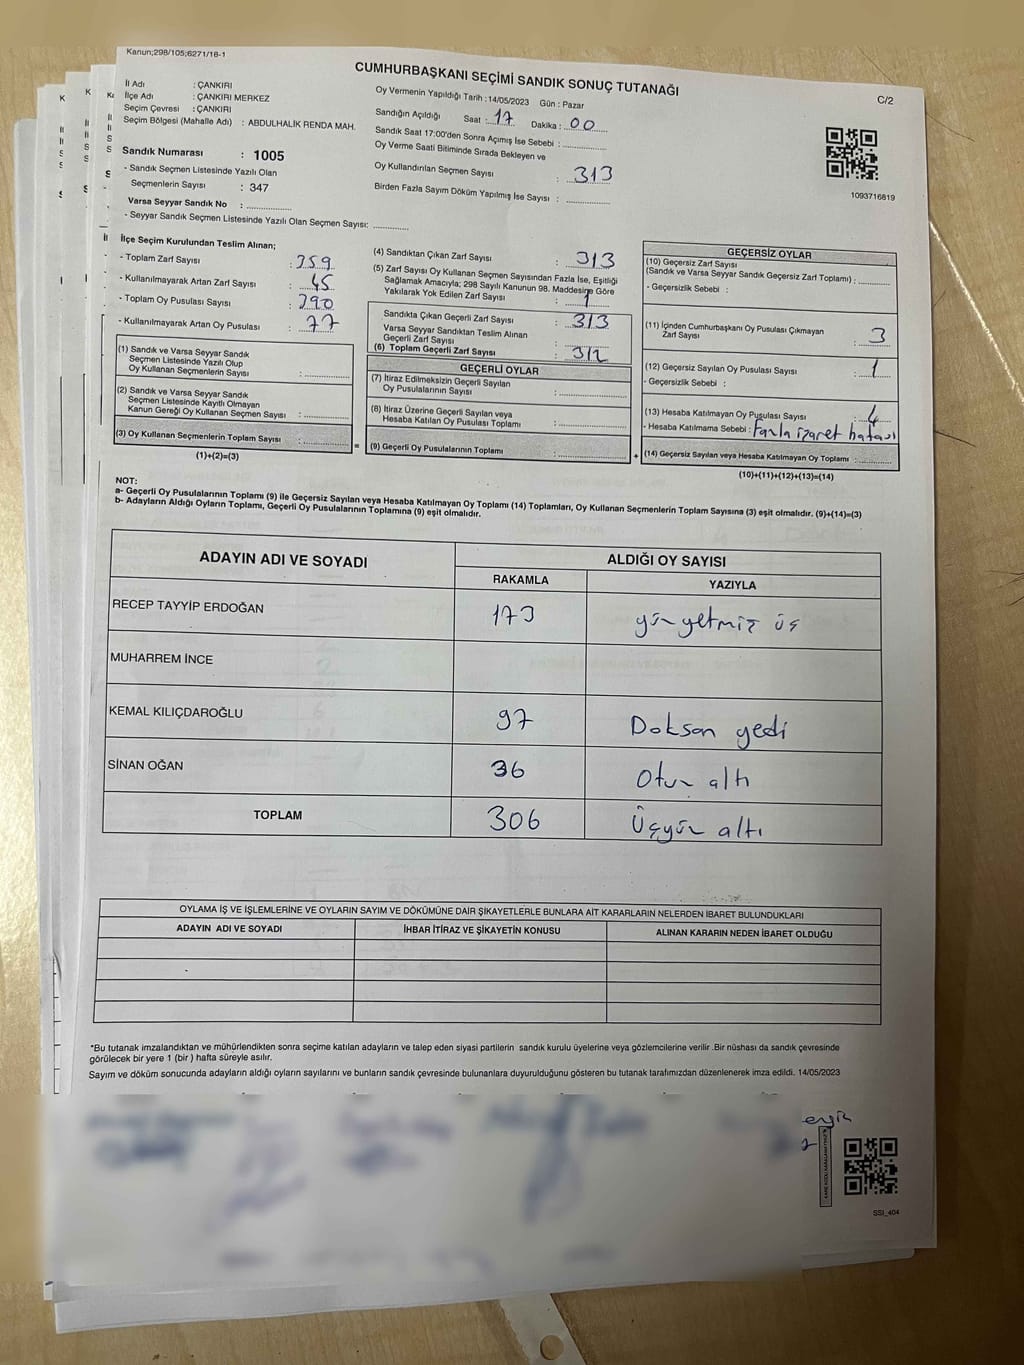 Kanun;298/105;6271/18-1
CUMHURBAŞKANI SEÇİMİ SANDIK SONUÇ TUTANAĞI
C/2
İl Adı : ÇANKIRI
İlçe Adı : ÇANKIRI MERKEZ
Seçim Çevresi : ÇANKIRI
Seçim Bölgesi (Mahalle Adı) : ABDULHALİK RENDA MAH.
Sandık Numarası : 1005
- Sandık Seçmen Listesinde Yazılı Olan
Seçmenlerin Sayısı : 347
Varsa Seyyar Sandık No : ..............
- Seyyar Sandık Seçmen Listesinde Yazılı Olan Seçmen Sayısı: ............
Oy Vermenin Yapıldığı Tarih : 14/05/2023 Gün : Pazar
Sandığın Açıldığı Saat : 17 Dakika : 00
Sandık Saat 17:00'den Sonra Açımış İse Sebebi : ............
Oy Verme Saati Bitiminde Sırada Bekleyen ve
Oy Kullandırılan Seçmen Sayısı : 313
Birden Fazla Sayım Döküm Yapılmış İse Sayısı : ............
1093716819
İlçe Seçim Kurulundan Teslim Alınan;
- Toplam Zarf Sayısı : 359
- Kullanılmayarak Artan Zarf Sayısı : 45
- Toplam Oy Pusulası Sayısı : 390
- Kullanılmayarak Artan Oy Pusulası : 77
(1) Sandık ve Varsa Seyyar Sandık
Seçmen Listesinde Yazılı Olup
Oy Kullanan Seçmenlerin Sayısı : ............
(2) Sandık ve Varsa Seyyar Sandık
Seçmen Listesinde Kayıtlı Olmayan
Kanun Gereği Oy Kullanan Seçmen Sayısı : ............
(3) Oy Kullanan Seçmenlerin Toplam Sayısı : ............
(1)+(2)=(3)
(4) Sandıktan Çıkan Zarf Sayısı : 313
(5) Zarf Sayısı Oy Kullanan Seçmen Sayısından Fazla İse, Eşitliği
Sağlamak Amacıyla; 298 Sayılı Kanunun 98. Maddesine Göre
Yakılarak Yok Edilen Zarf Sayısı : 1
Sandıkta Çıkan Geçerli Zarf Sayısı : 313
Varsa Seyyar Sandıktan Teslim Alınan
Geçerli Zarf Sayısı : ............
(6) Toplam Geçerli Zarf Sayısı : 312
GEÇERLİ OYLAR
(7) İtiraz Edilmeksizin Geçerli Sayılan
Oy Pusulalarının Sayısı : ............
(8) İtiraz Üzerine Geçerli Sayılan veya
Hesaba Katılan Oy Pusulası Toplamı : ............
= (9) Geçerli Oy Pusulalarının Toplamı : ............ +
GEÇERSİZ OYLAR
(10) Geçersiz Zarf Sayısı
(Sandık ve Varsa Seyyar Sandık Geçersiz Zarf Toplamı) : ............
- Geçersizlik Sebebi :
(11) İçinden Cumhurbaşkanı Oy Pusulası Çıkmayan
Zarf Sayısı : 3
(12) Geçersiz Sayılan Oy Pusulası Sayısı : 1
- Geçersizlik Sebebi :
(13) Hesaba Katılmayan Oy Pusulası Sayısı : 4
- Hesaba Katılmama Sebebi : Fazla işaret hatası
(14) Geçersiz Sayılan veya Hesaba Katılmayan Oy Toplamı : ............
(10)+(11)+(12)+(13)=(14)
NOT:
a- Geçerli Oy Pusulalarının Toplamı (9) ile Geçersiz Sayılan veya Hesaba Katılmayan Oy Toplamı (14) Toplamları, Oy Kullanan Seçmenlerin Toplam Sayısına (3) eşit olmalıdır. (9)+(14)=(3)
b- Adayların Aldığı Oyların Toplamı, Geçerli Oy Pusulalarının Toplamına (9) eşit olmalıdır.
ADAYIN ADI VE SOYADI ALDIĞI OY SAYISI
RAKAMLA YAZIYLA
RECEP TAYYİP ERDOĞAN 173 yüz yetmiş üç
MUHARREM İNCE
KEMAL KILIÇDAROĞLU 97 Doksan yedi
SİNAN OĞAN 36 Otuz altı
TOPLAM 306 Üçyüz altı
OYLAMA İŞ VE İŞLEMLERİNE VE OYLARIN SAYIM VE DÖKÜMÜNE DAİR ŞİKAYETLERLE BUNLARA AİT KARARLARIN NELERDEN İBARET BULUNDUKLARI
ADAYIN ADI VE SOYADI İHBAR İTİRAZ VE ŞİKAYETİN KONUSU ALINAN KARARIN NEDEN İBARET OLDUĞU
*Bu tutanak imzalandıktan ve mühürlendikten sonra seçime katılan adayların ve talep eden siyasi partilerin sandık kurulu üyelerine veya gözlemcilerine verilir .Bir nüshası da sandık çevresinde
görülecek bir yere 1 (bir ) hafta süreyle asılır.
Sayım ve döküm sonucunda adayların aldığı oyların sayılarını ve bunların sandık çevresinde bulunanlara duyurulduğunu gösteren bu tutanak tarafımızdan düzenlenerek imza edildi. 14/05/2023
SSI_404